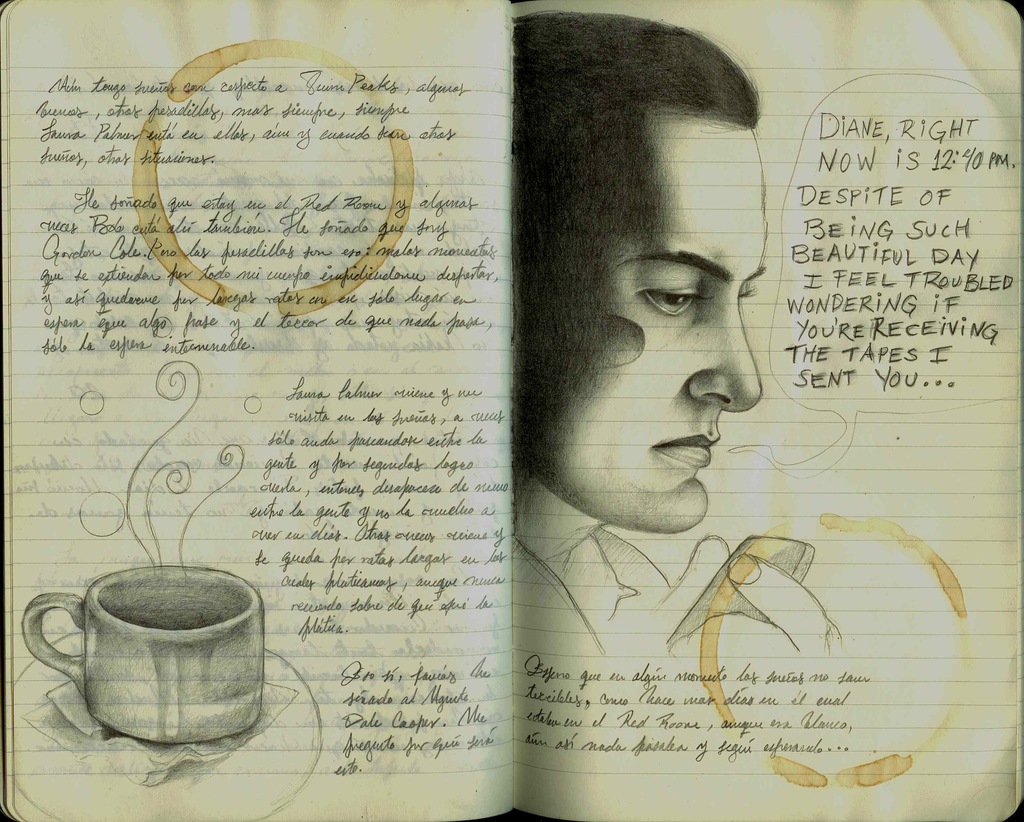 Aún tengo sueños con respecto a Twin Peaks, algunos
buenos, otros pesadillas, mas siempre, siempre
Laura Palmer está en ellos, aún y cuando sean otros
sueños, otras situaciones.
He soñado que estoy en el Red Room y algunas
veces Bob está ahí también. He soñado que soy
Gordon Cole. Pero las pesadillas son eso: malos momentos
que se extienden por todo mi cuerpo impidiendome despertar,
y así quedarme por largos ratos en ese sólo lugar en
espera que algo pase y el terror de que nada pasa,
sólo la espera interminable.
Laura Palmer viene y me
visita en los sueños, a veces
sólo anda paseandose entre la
gente y por segundos logro
verla, entonces desaparece de nuevo
entre la gente y no la vuelvo a
ver en días. Otras veces viene y
se queda por ratos largos en los
cuales platicamos, aunque nunca
recuerdo sobre de qué la
plática.
Eso sí, jamás he
soñado al Agente
Dale Cooper. Me
pregunto por qué será
esto.
DIANE, RIGHT
NOW IS 12:40 PM.
DESPITE OF
BEING SUCH
BEAUTIFUL DAY
I FEEL TROUBLED
WONDERING IF
YOU'RE RECEIVING
THE TAPES I
SENT YOU...
Espero que en algún momento los sueños no sean
terribles, como hace unos días en el cual
estaba en el Red Room, aunque era blanco,
aún así nada pasaba y seguí esperando...